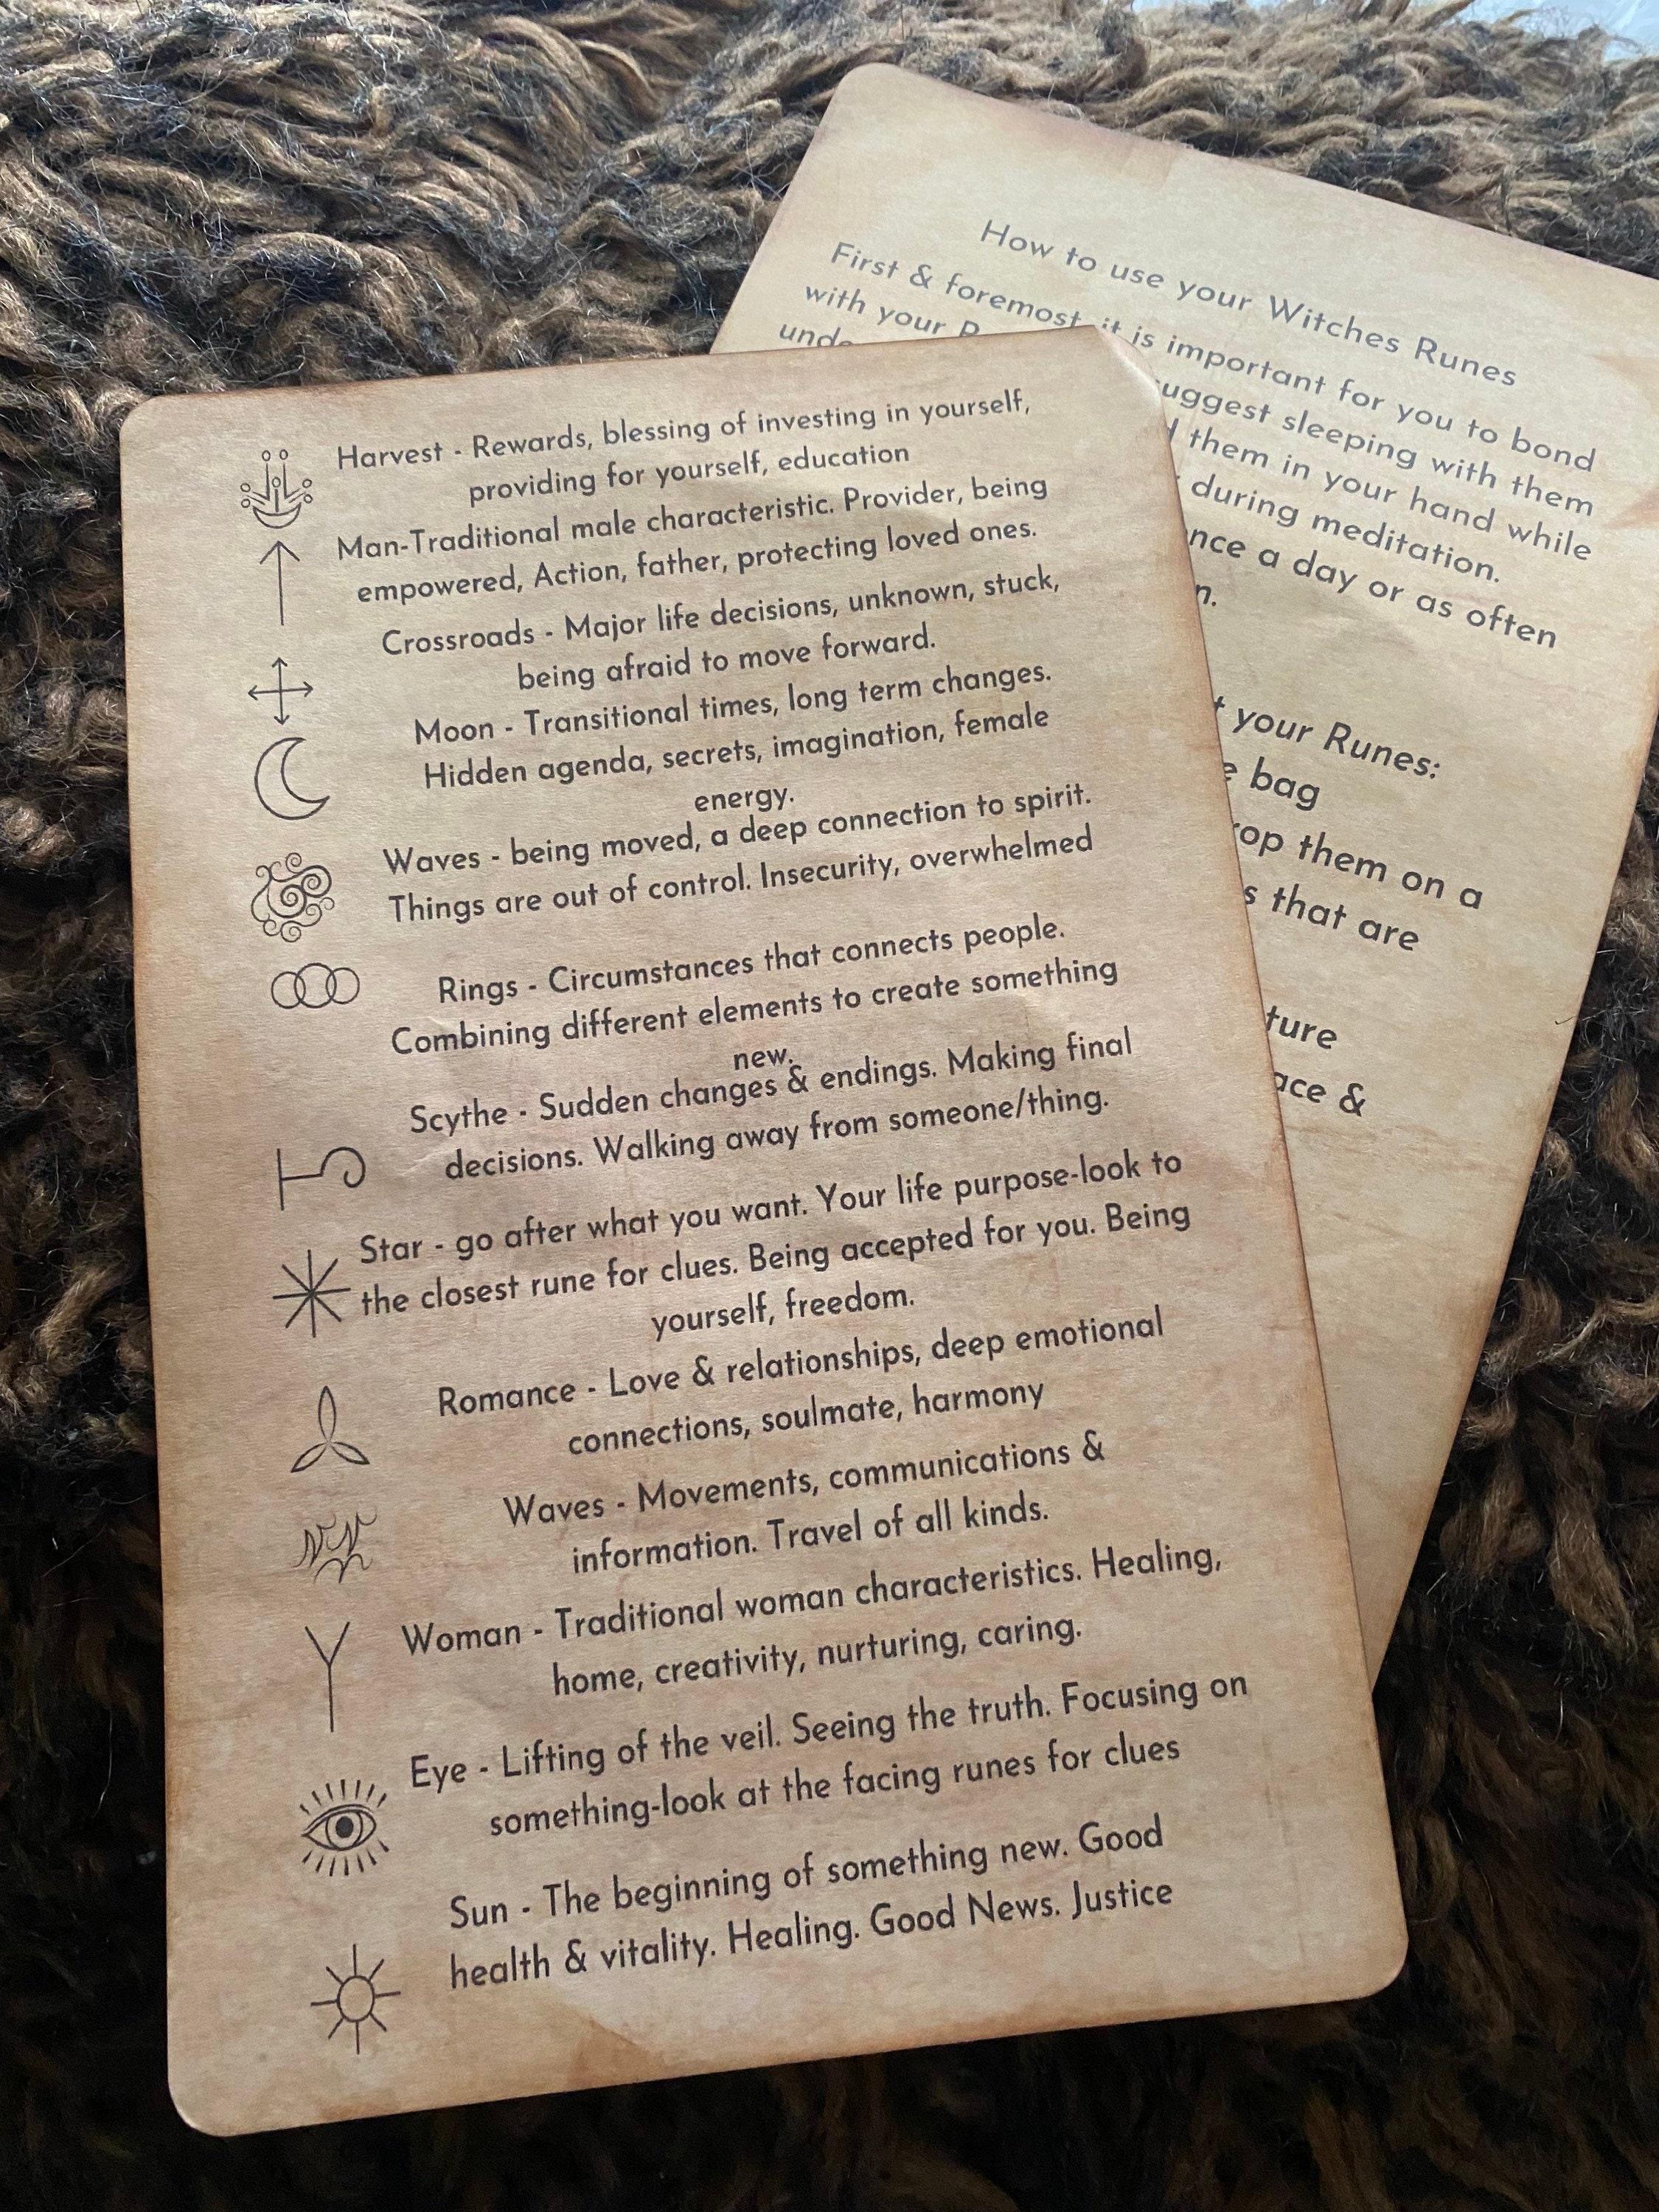 How to use your Witches Runes
First & foremost, it is important for you to bond
with your suggest sleeping with them
them in your hand while
during meditation.
once a day or as often
your Runes:
bag
them on a
that are
&
Harvest - Rewards, blessing of investing in yourself,
providing for yourself, education
Man-Traditional male characteristic. Provider, being
empowered, Action, father, protecting loved ones.
Crossroads - Major life decisions, unknown, stuck,
being afraid to move forward.
Moon - Transitional times, long term changes.
Hidden agenda, secrets, imagination, female
energy.
Waves - being moved, a deep connection to spirit.
Things are out of control. Insecurity, overwhelmed
Rings - Circumstances that connects people.
Combining different elements to create something
new.
Scythe - Sudden changes & endings. Making final
decisions. Walking away from someone/thing.
Star - go after what you want. Your life purpose-look to
the closest rune for clues. Being accepted for you. Being
yourself, freedom.
Romance - Love & relationships, deep emotional
connections, soulmate, harmony
Waves - Movements, communications &
information. Travel of all kinds.
Woman - Traditional woman characteristics. Healing,
home, creativity, nurturing, caring.
Eye - Lifting of the veil. Seeing the truth. Focusing on
something-look at the facing runes for clues
Sun - The beginning of something new. Good
health & vitality. Healing. Good News. Justice